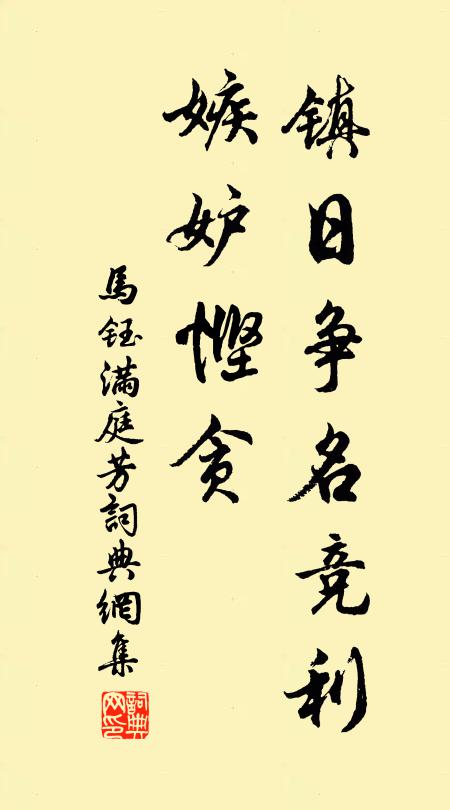 镇日争名竞利
嫉妒悭贪
馬鈺滿庭芳詞典網集
詞典网印